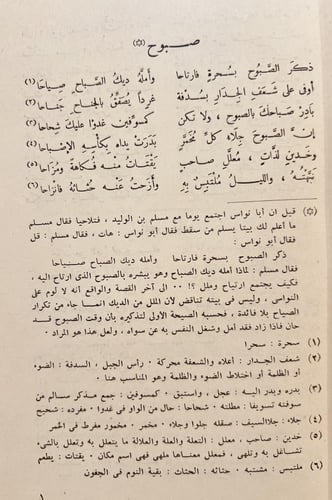 صـبـوح (☆)
ذكرَ الصَّبُوحَ بسُحرةٍ فارتاحا وأملَّهُ ديكُ الصَّباحِ صِياحا (١)
أوفى على شَعَفِ الجِدارِ بسُدْفةٍ غَرِداً يُصَفِّقُ بالجَناحِ جَناحا (٢)
بادِرْ صَباحَكَ بالصَّبوحِ ، ولا تكن كمُسوِّفينَ غدَوْا عليكَ شِحاحا (٣)
إنَّ الصَّبوحَ جِلاءُ كلِّ مُخَمَّرٍ بَدَرَتْ يداهُ بكأسِهِ الإصْباحا (٤)
وخَدينِ لذّاتٍ ، مُعلِّلِ صاحبٍ يَقْتاتُ منه فُكاهةً ومُزاحا (٥)
نَبَّهْتُهُ ، والليلُ مُلْتَبِسٌ بهِ وأزَحْتُ عنهُ حُثاثَهُ فانْزاحا (٦)
(☆) قيل ان أبا نواس اجتمع يوما مع مسلم بن الوليد ، فتلاحيا فقال مسلم
ما أعلم لك بيتا يسلم من سقط فقال أبو نواس : هات ، فقال مسلم : قل
فقال أبو نواس :
ذكر الصبوح بسحرة فارتاحا وامله ديك الصباح صياحا
فقال مسلم : لماذا امله ديك الصباح وهو يبشره بالصبوح الذي ارتاح اليه ،
فكيف يجتمع ارتياح وملل ؟! ٠٠ الى آخر القصة والواقع أنه لا لوم على
النواسي ، وليس في بيته تناقض لأن الملل من الديك انما جاء من تكرار
الصياح بلا فائدة ، فحسبه الصيحة الأولى لتذكره بأن وقت الصبوح قد
حان فاذا زاد فقد أمل وشغل النفس به عن سواه ، ولعل هذا هو المراد ٠
(١) سحرة : سحرا
(٢) شعف الجدار : أعلاه والشعفة محركة ٠ رأس الجبل ، السدفة : الضوء
أو الظلمة أو اختلاط الضوء والظلمة وهو المناسب هنا ٠
(٣) بدره وبدر اليه : عجل ، واستبق ٠ كمسوفين : جمع مذكر سالم من
سوفته تسويفا : مطلته ٠ شحاحا : حال من الواو في غدوا ٠ مفرده : شحيح
(٤) جلاء : جلاالسيف : صقله جلوا وجلاء ٠ مخمر : مخمور مفرط في الخمر
(٥) خدين : صاحب، معلل : التعلة والعلة والعلالة ما يتعلل به وتعلل بالشيء
تشاغل به وتلهى ، فمعلل معناها ملهي فهو اسم مكان ٠ يقتات : يطعم
(٦) ملتبس : مشتبه ٠ حثاثه : الحثاث : بقية النوم في الجفون